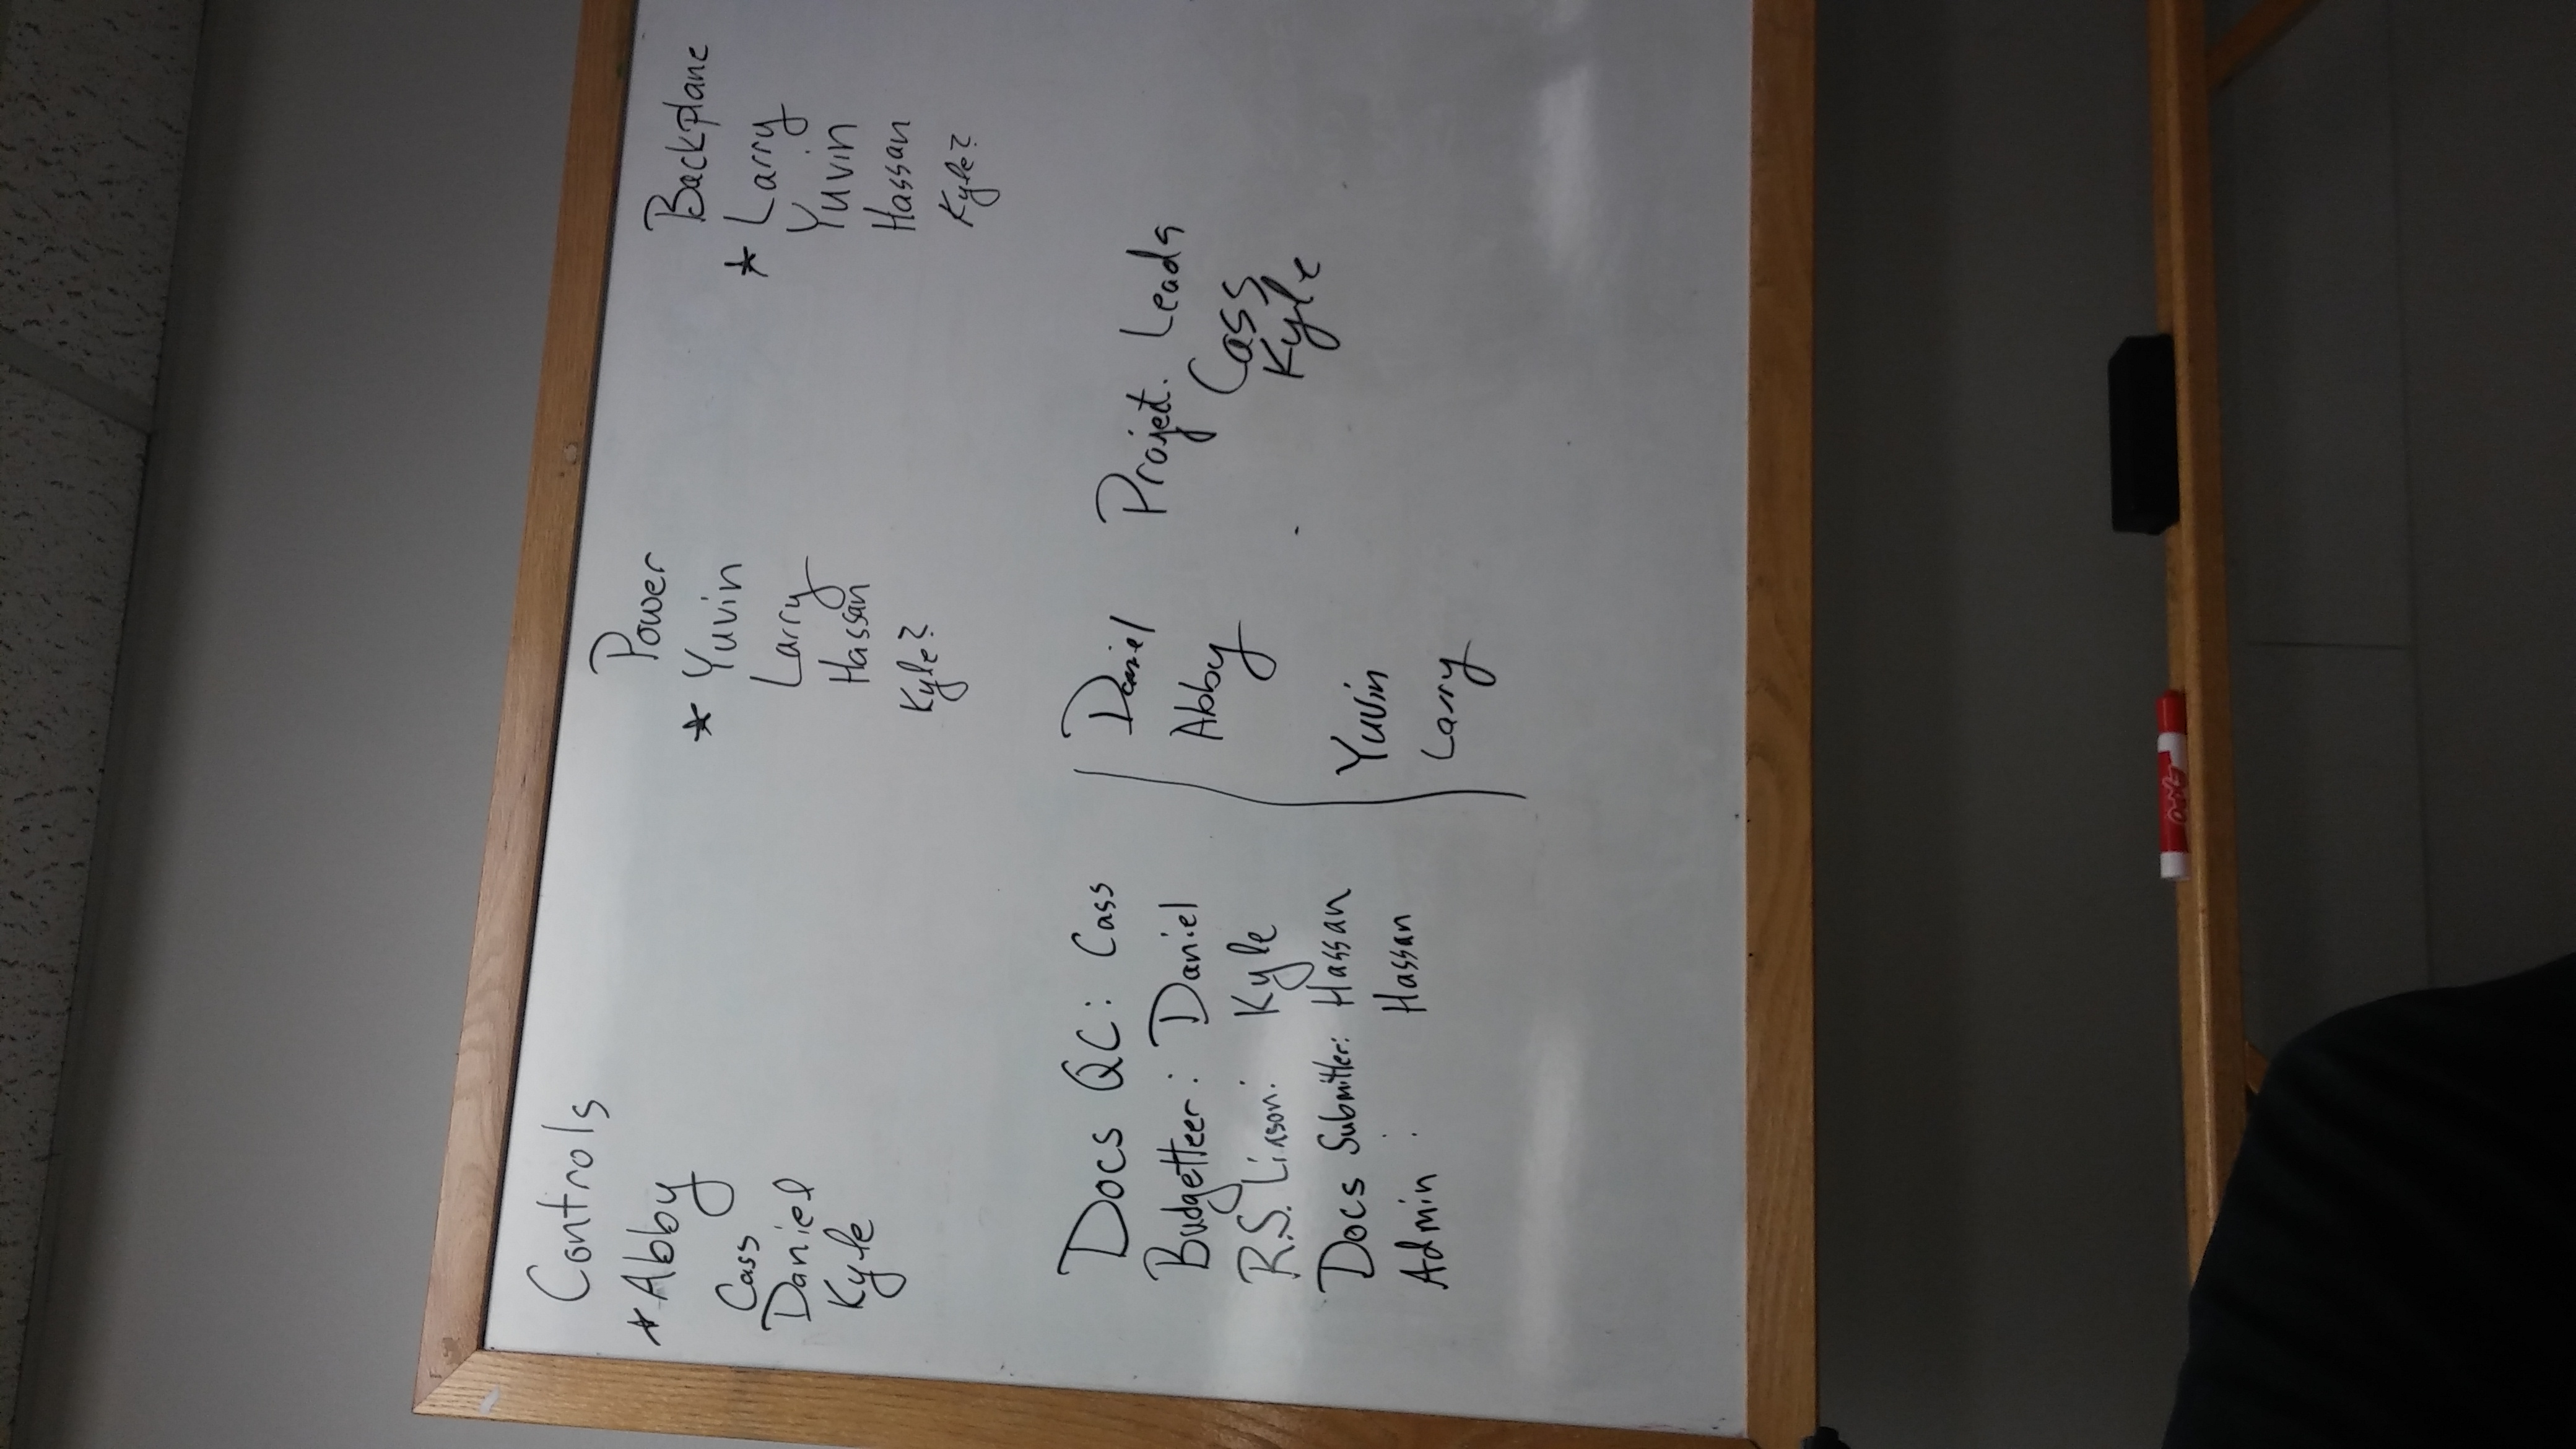 Controls
★ Abby
Cass
Daniel
Kyle
Power
★ Yuvin
Larry
Hassan
Kyle?
Backplane
★ Larry
Yuvin
Hassan
Kyle?
Docs QC: Cass
Budgetteer: Daniel
R.S. Liason: Kyle
Docs Submitter: Hassan
Admin : Hassan
Daniel
Abby
Yuvin
Larry
Project. Leads
Cass
Kyle
EXPO